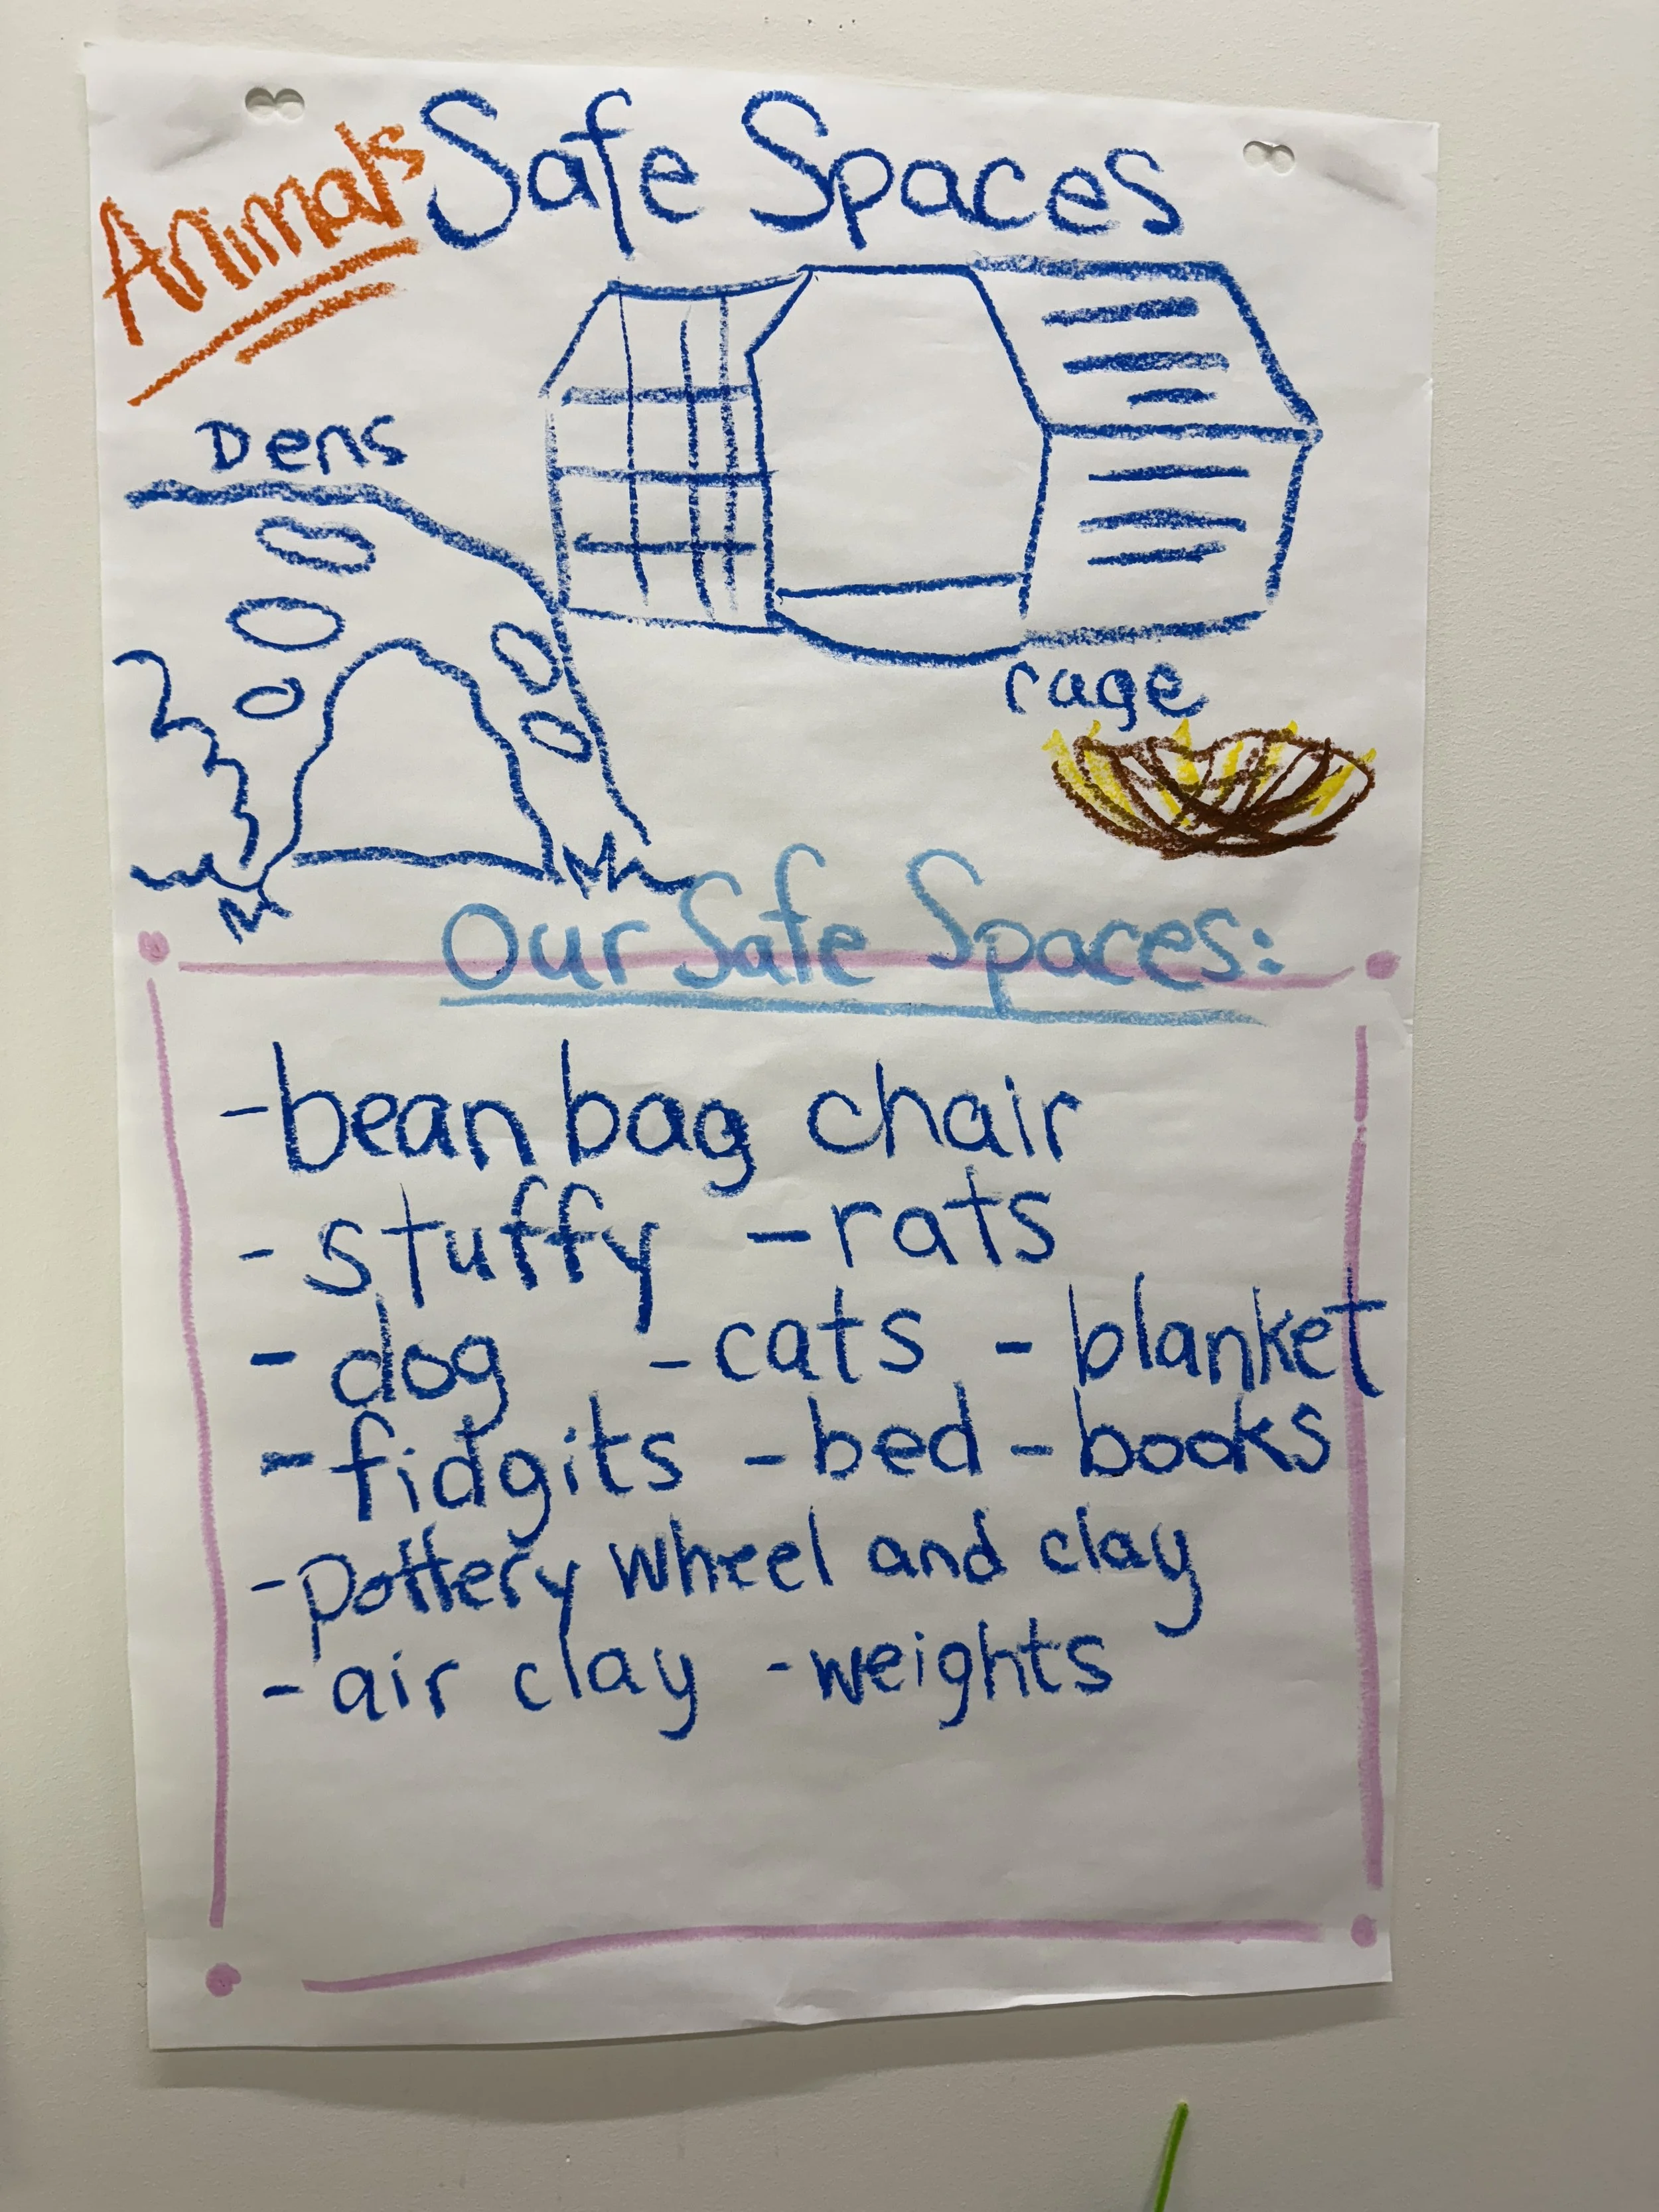 Animals Safe Spaces
Dens
cage
Our Safe Spaces:
- bean bag chair
- stuffy - rats
- dog - cats - blanket
- fidgits - bed - books
- pottery wheel and clay
- air clay - weights